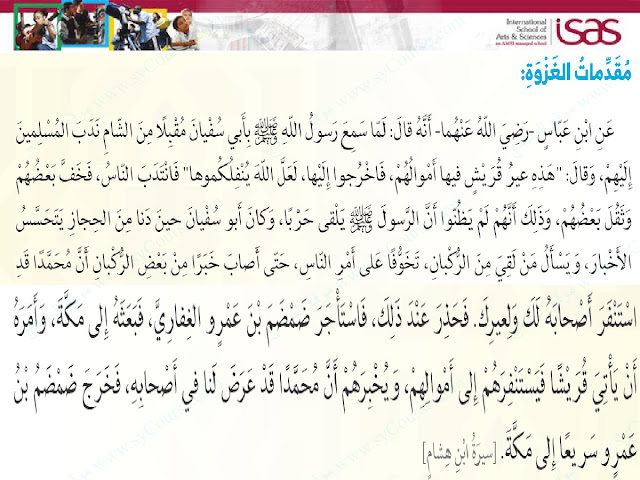 International
School of
Arts & Sciences
an AMSI managed school
isas
مُقَدِّماتُ الغَزْوَةِ:
عَنِ ابْنِ عَبّاسٍ -رَضِيَ اللّهُ عَنْهُما- أَنَّهُ قالَ: لَمّا سَمِعَ رَسولُ اللّهِ ﷺ بِأَبي سُفْيانَ مُقْبِلًا مِنَ الشّامِ نَدَبَ المُسْلِمينَ
إِلَيْهِمْ، وَقالَ: "هَذِهِ عيرُ قُرَيْشٍ فيها أَمْوالُهُمْ، فَاخْرُجوا إِلَيْها، لَعَلَّ اللّهَ يُنْفِلُكُموها" فَانْتَدَبَ النّاسُ، فَخَفَّ بَعْضُهُمْ
وَثَقُلَ بَعْضُهُمْ، وَذَلِكَ أَنَّهُمْ لَمْ يَظُنّوا أَنَّ الرَّسولَ ﷺ يَلْقى حَرْبًا، وَكانَ أَبو سُفْيانَ حينَ دَنا مِنَ الحِجازِ يَتَحَسَّسُ
الأَخْبارَ، وَيَسْأَلُ مَنْ لَقِيَ مِنَ الرُّكْبانِ، تَخَوُّفًا عَلى أَمْرِ النّاسِ، حَتّى أَصابَ خَبَرًا مِنْ بَعْضِ الرُّكْبانِ أَنَّ مُحَمَّدًا قَدِ
اسْتَنْفَرَ أَصْحابَهُ لَكَ وَلِعيرِكَ. فَحَذِرَ عَنْدَ ذَلِكَ، فَاسْتَأْجَرَ ضَمْضَمَ بْنَ عَمْرٍو الغِفارِيَّ، فَبَعَثَهُ إِلى مَكَّةَ، وَأَمَرَهُ
أَنْ يَأْتِيَ قُرَيْشًا فَيَسْتَنْفِرَهُمْ إِلى أَمْوالِهِمْ، وَيُخْبِرَهُمْ أَنَّ مُحَمَّدًا قَدْ عَرَضَ لَنا في أَصْحابِهِ، فَخَرَجَ ضَمْضَمُ بْنُ
عَمْرٍو سَريعًا إِلى مَكَّةَ. [سيرَةُ ابْنِ هِشامٍ]